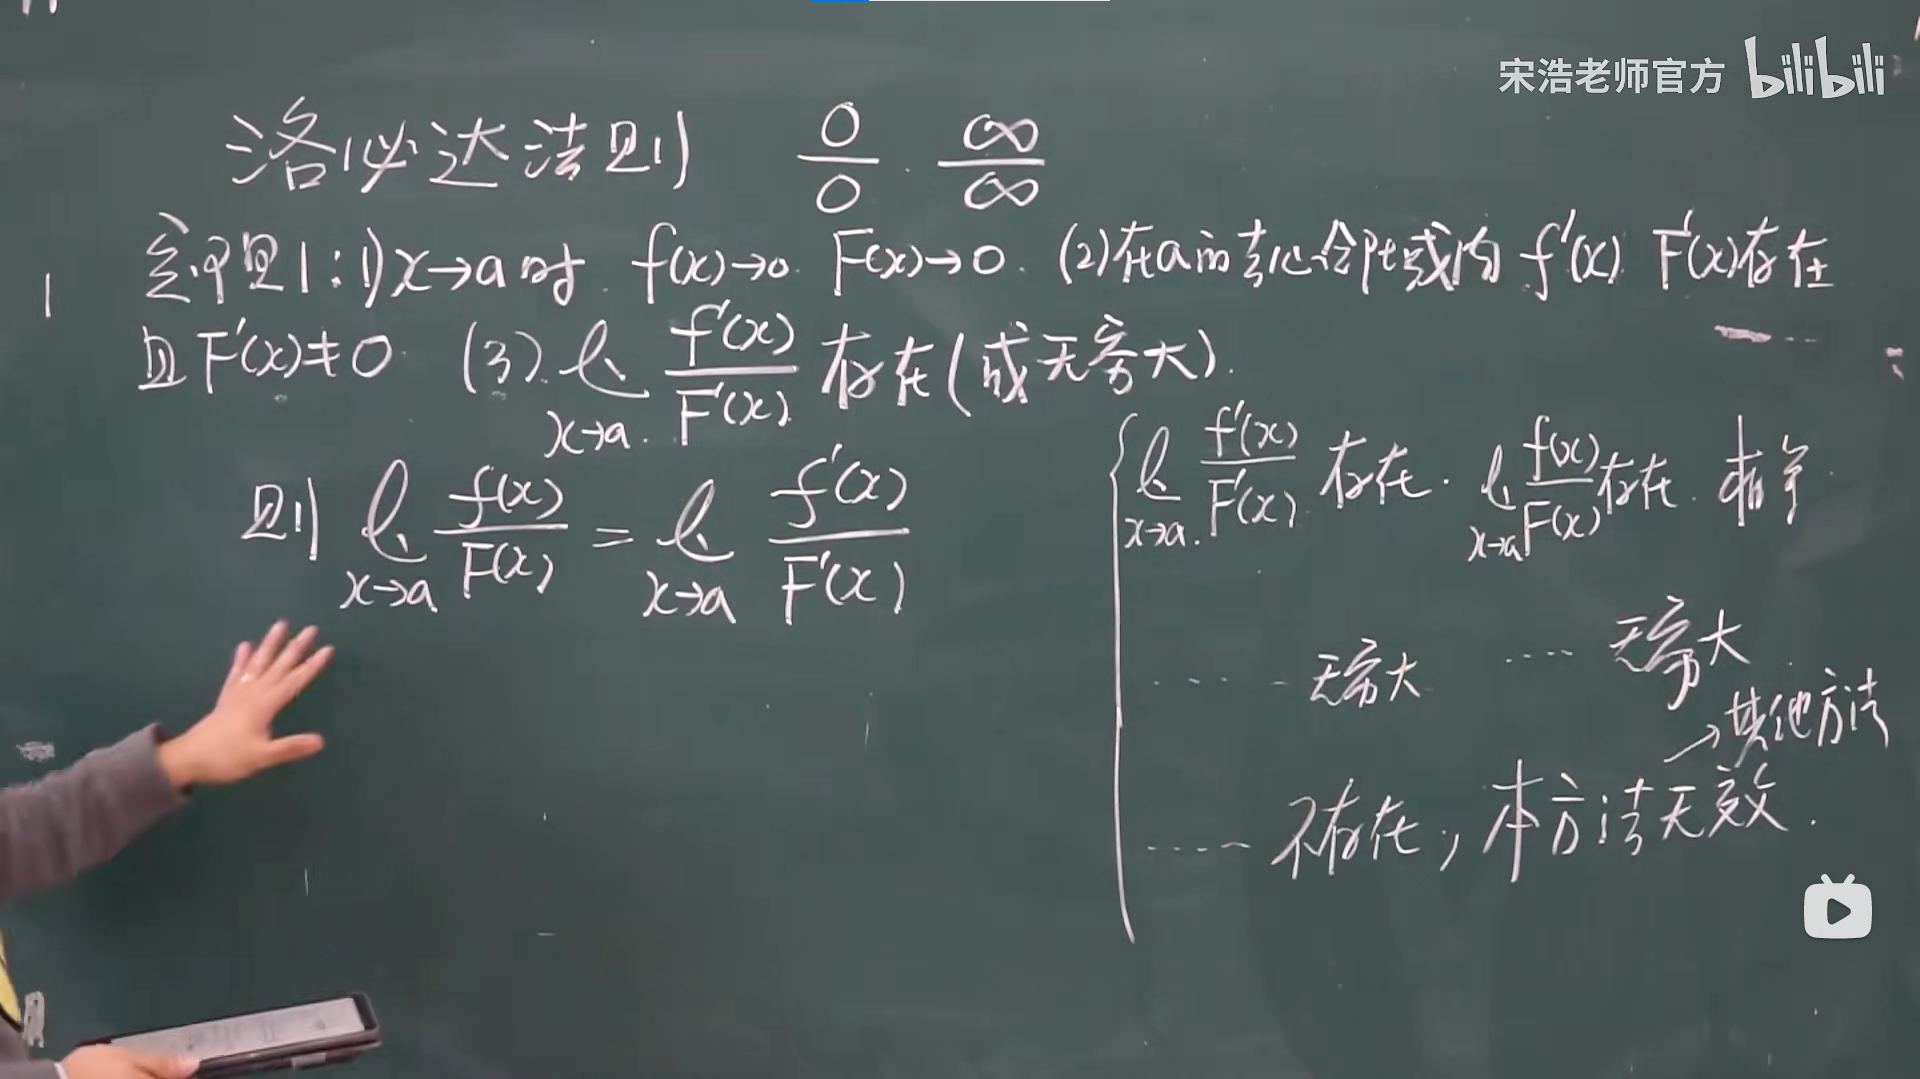 宋浩老师官方 bilibili
洛必达法则 0/0 . ∞/∞
定理1:1) x→a时 f(x)→0. F(x)→0. (2)在a的去心邻域内 f'(x) F'(x)存在
且F'(x)≠0 (3). lim x→a. f'(x)/F'(x) 存在(或无穷大).
则 lim x→a f(x)/F(x) = lim x→a f'(x)/F'(x)
{ lim x→a. f'(x)/F'(x) 存在. lim x→a f(x)/F(x) 存在. 相等.
..... 无穷大 .... 无穷大
→其他方法
.... 不存在, 本方法无效.